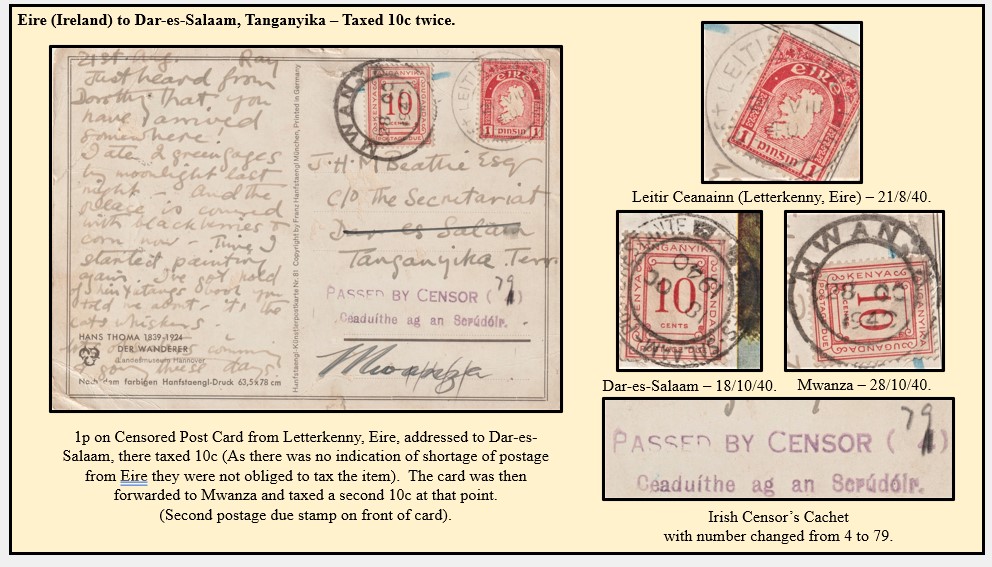 Eire (Ireland) to Dar-es-Salaam, Tanganyika – Taxed 10c twice.
21st Aug. Ray
Just heard from
Dorothy that you
have arrived
somewhere!
I ate 2 greengages
by moonlight last
night - And the
place is covered
with blackberries &
corn now -
started painting
again. I've got hold
of
told me about - it's the
cats whiskers.
HANS THOMA 1839-1924
DER WANDERER
Landesmuseum Hannover
Nach dem farbigen Hanfstaengl-Druck 63,5x78 cm
Hanfstaengl-Künstlerpostkarte Nr. 81 Copyright by Franz Hanfstaengl München, Printed in Germany
MWANZA
TANGANYIKA
KENYA
UGANDA
10
CENTS
POSTAGE DUE
LEITIR
éire
1 PINSIN 1
J. H. M Beattie Esq
c/o The Secretariat
Dar es Salaam
Tanganyika Terr.
PASSED BY CENSOR ( )
79
Ceaduithe ag an Scrúdóir.
Mwanza
LEITIR
éire
1 PINSIN 1
Leitir Ceanainn (Letterkenny, Eire) – 21/8/40.
TANGANYIKA
KENYA
UGANDA
10
CENTS
18 OC
1940
Dar-es-Salaam – 18/10/40.
MWANZA
KENYA
UGANDA
TANGANYIKA
POSTAGE DUE
10
CENTS
28 OC
1940
Mwanza – 28/10/40.
79
PASSED BY CENSOR ( 4 )
Ceaduíthe ag an Scrúdóir.
1p on Censored Post Card from Letterkenny, Eire, addressed to Dar-es-
Salaam, there taxed 10c (As there was no indication of shortage of postage
from Eire they were not obliged to tax the item). The card was then
forwarded to Mwanza and taxed a second 10c at that point.
(Second postage due stamp on front of card).
Irish Censor’s Cachet
with number changed from 4 to 79.